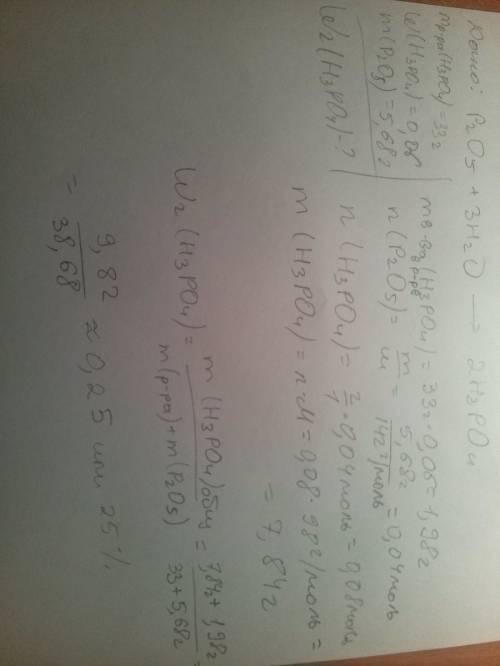 Дано: P₂O₅ + 3H₂O → 2H₃PO₄
mр-ра(H₃PO₄) = 33г
W(H₃PO₄) = 0,06
m(P₂O₅) = 5,68г
W₂(H₃PO₄) - ?
mв-ва(H₃PO₄) = 33г · 0,06 = 1,98г
в р-ре
n(P₂O₅) = m/M = 5,68г/142г/моль = 0,04моль
n(H₃PO₄) = 2/1 · 0,04моль = 0,08моль
m(H₃PO₄) = n·M = 0,08 · 98г/моль =
= 7,84г
W₂(H₃PO₄) = m(H₃PO₄)общ/m(р-ра)+m(P₂O₅) = 7,84г + 1,98г/33 + 5,68г =
= 9,82/38,68 ≈ 0,25 или 25%